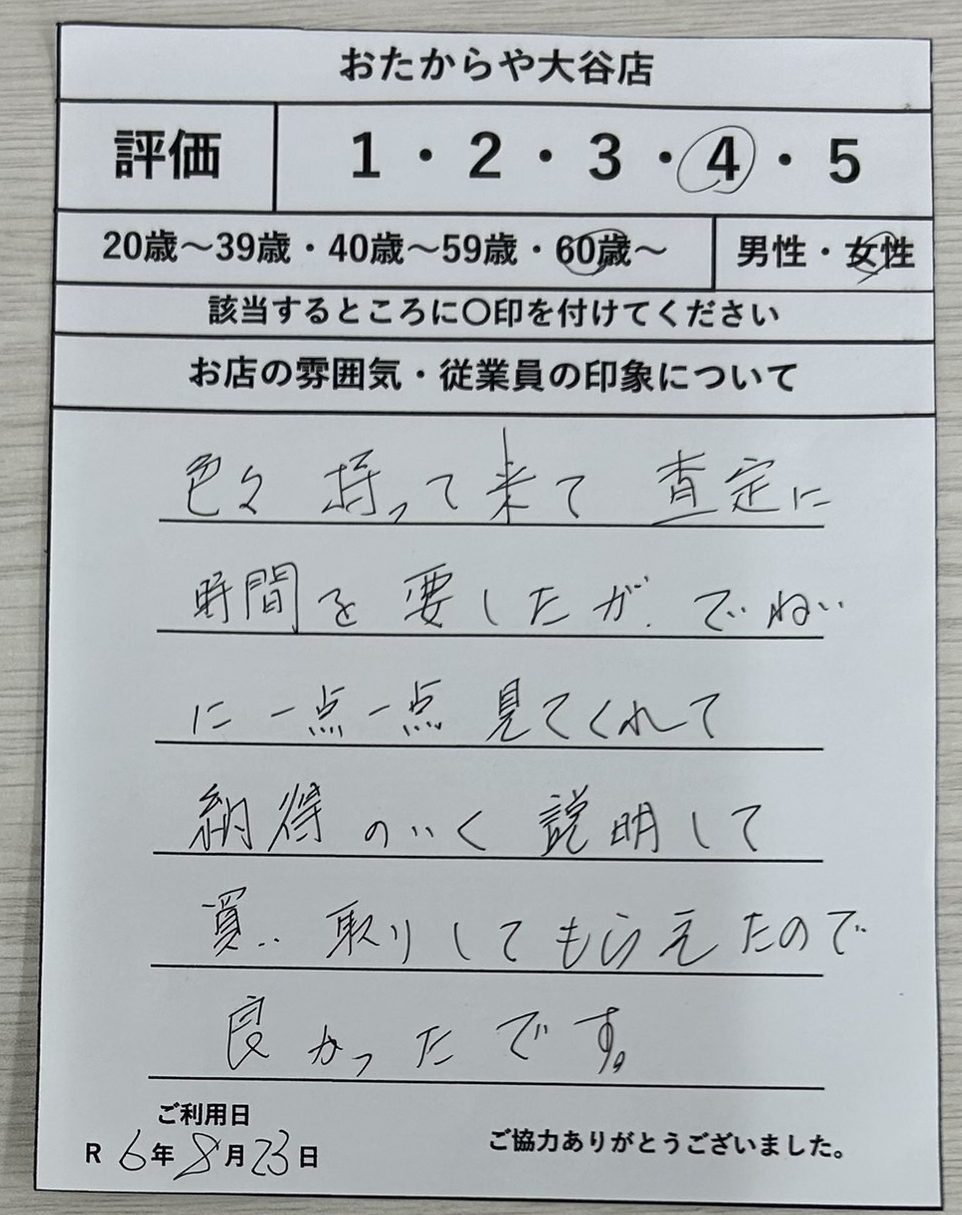 おたからや大谷店
評価 1・2・3・4・5
20歳～39歳・40歳～59歳・60歳～ 男性・女性
該当するところに〇印を付けてください
お店の雰囲気・従業員の印象について
色々持って来て査定に
時間を要したが、でいねい
に一点一点見てくれて
納得のいく説明して
買い取りしてもらえたので
良かったです。
ご利用日
R6年8月23日
ご協力ありがとうございました。